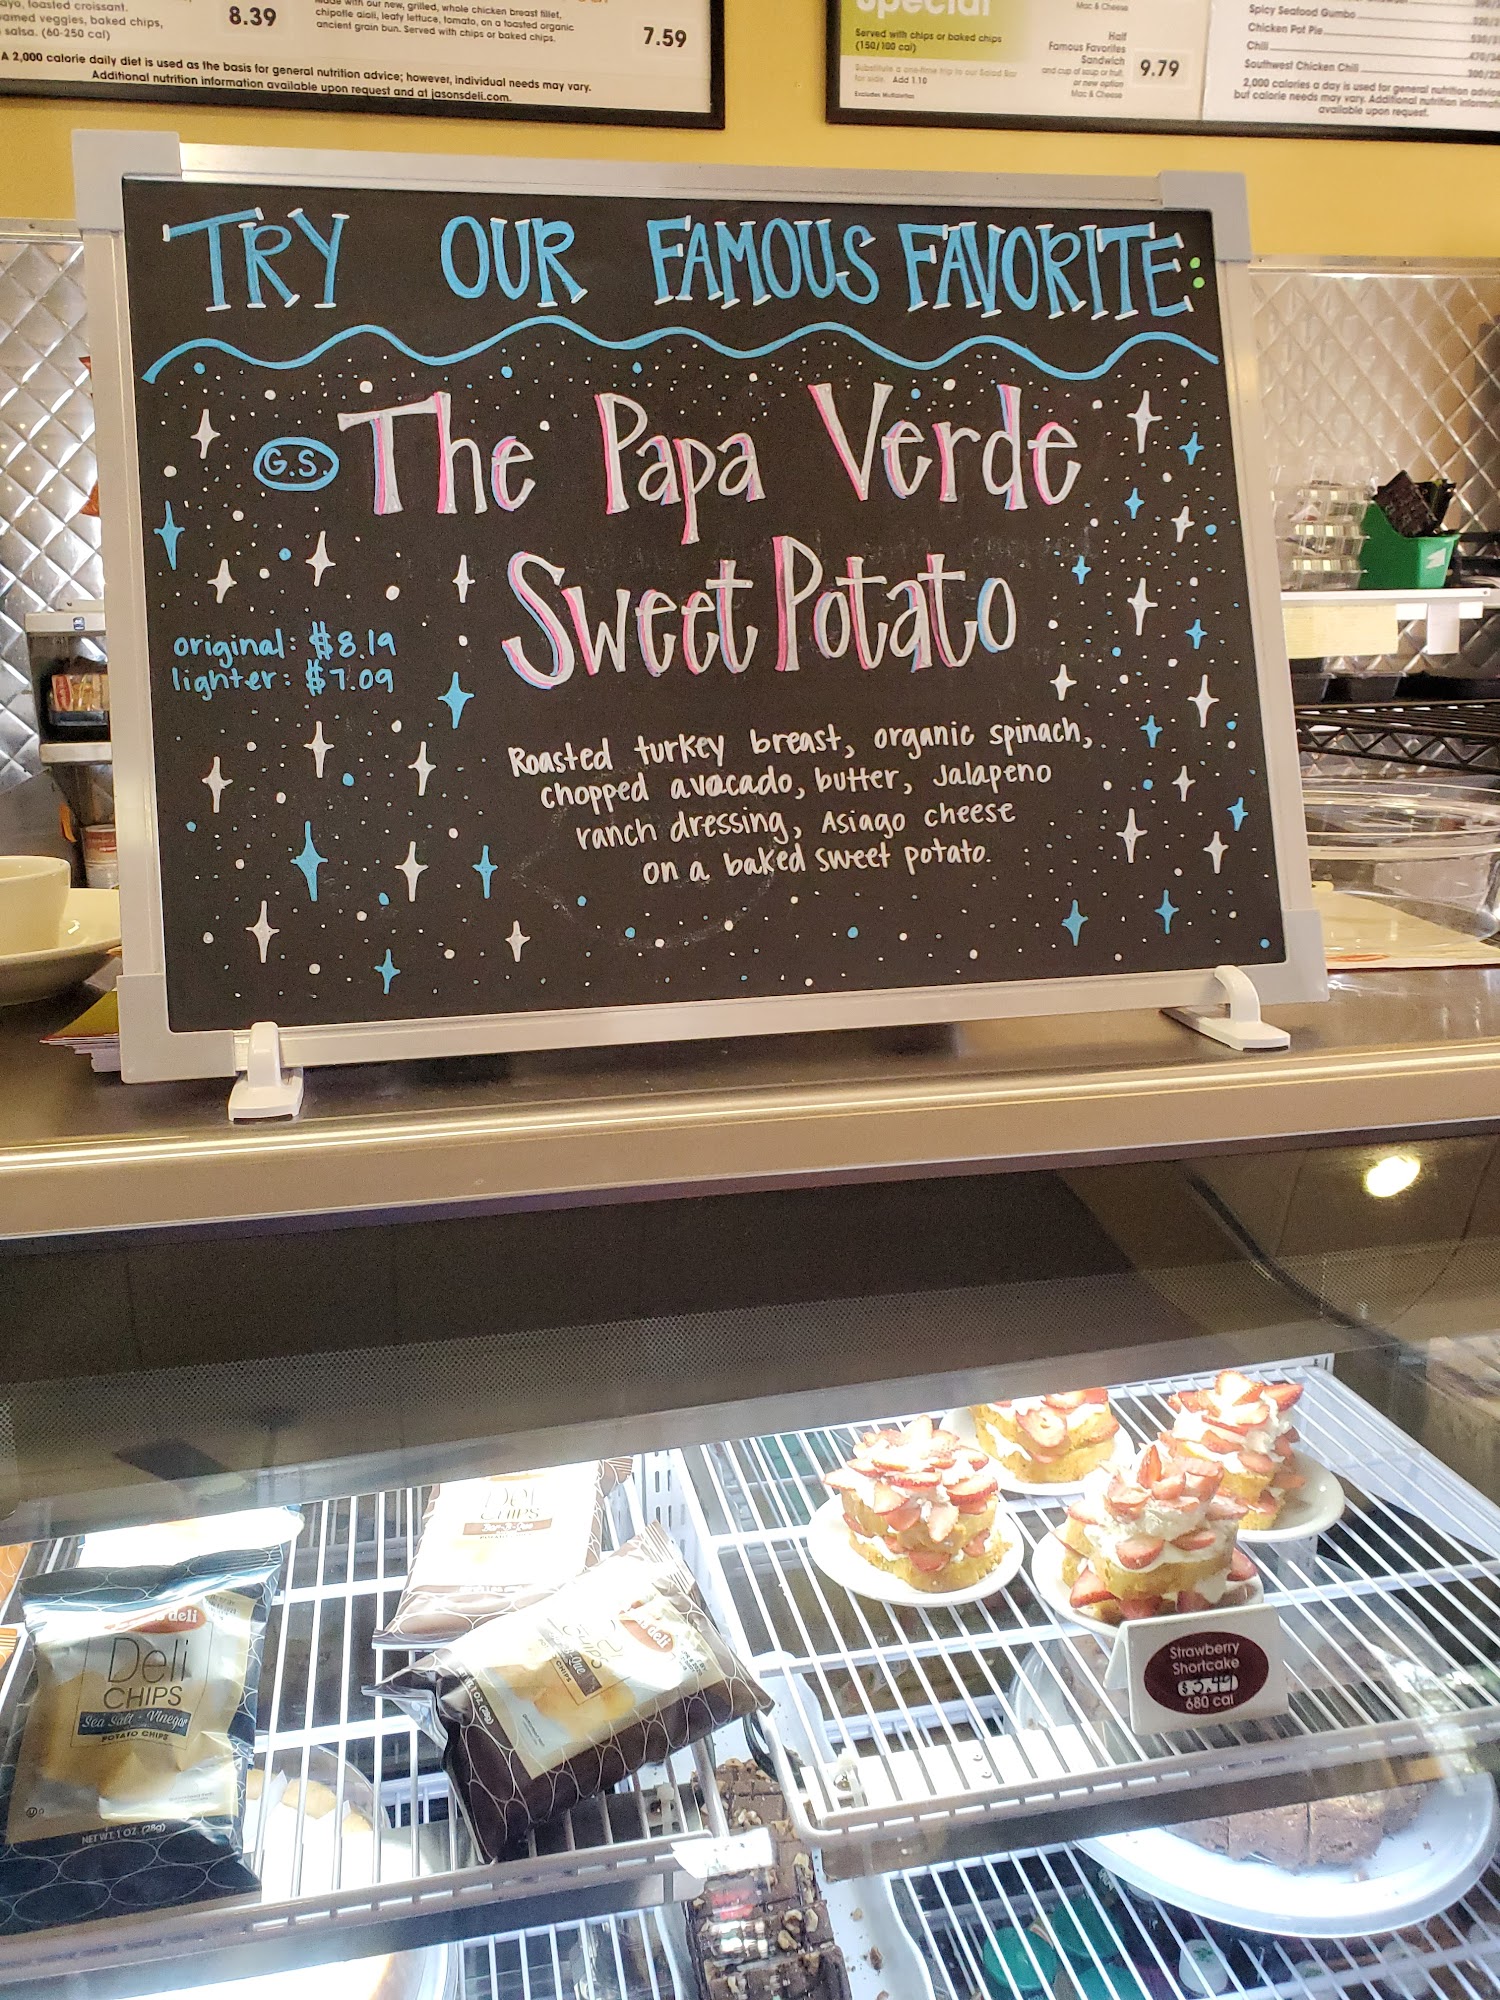 toasted croissant.
veggies, baked chips,
salsa. (60-250 cal)
8.39
with our new, grilled, whole chicken breast fillet,
chipotle aioli, leafy lettuce, tomato, on a toasted organic
ancient grain bun. Served with chips or baked chips.
7.59
A 2,000 calorie daily diet is used as the basis for general nutrition advice; however, individual needs may vary.
Additional nutrition information available upon request and at jasonsdeli.com.
Special
Served with chips or baked chips
(150/100 cal)
Substitute a one-time trip to our Salad Bar
for side. Add 1.10
Excludes Muffalettas
Mac & Cheese
Half
Famous Favorites
Sandwich
and cup of soup or fruit,
or new option
Mac & Cheese
9.79
Spicy Seafood Gumbo
Chicken Pot Pie
Chili
Southwest Chicken Chili
2,000 calories a day is used for general nutrition advice
but calorie needs may vary. Additional nutrition
available upon request.
TRY OUR FAMOUS FAVORITE:
G.S. The Papa Verde
Sweet Potato
original: $8.19
lighter: $7.09
Roasted turkey breast, organic spinach,
chopped avocado, butter, Jalapeno
ranch dressing, Asiago cheese
on a baked sweet potato.
Deli
CHIPS
deli
Deli
CHIPS
Sea Salt - Vinegar
POTATO CHIPS
NET WT. 1 OZ. (28g)
deli
CHIPS
Strawberry
Shortcake
680 cal